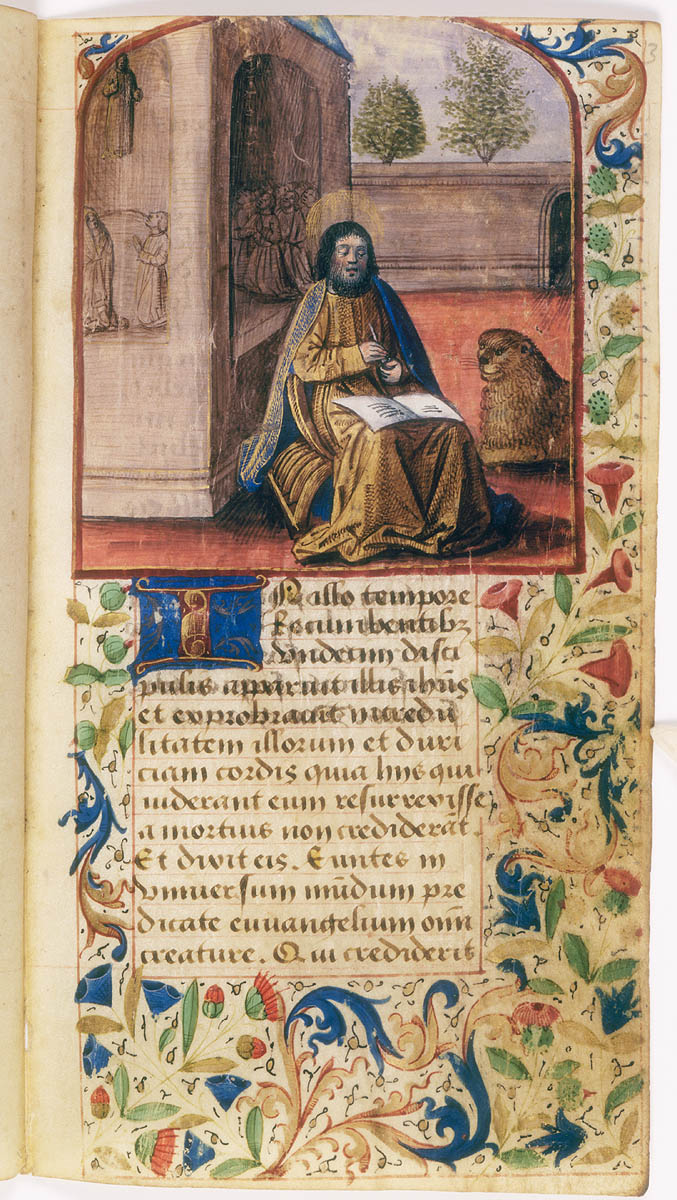 IN illo tempore
Recumbentibꝫ
vndecim disci
pulis apparuit illis ihūs
et exprobrauit incredu
litatem illorum et duri
ciam cordis quia hiis qui
uiderant eum resurrexisse
a mortuis non crediderāt.
Et dixit eis. Euntes in
vniuersum mūdum pre
dicate euuangelium omī
creature. Qui crediderit